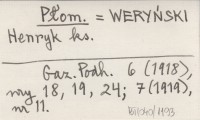 Płom. = WERYŃSKI
Henryk ks.
Gaz. Podh. 6 (1918),
nry 18, 19, 24; 7 (1919),
nr 11.